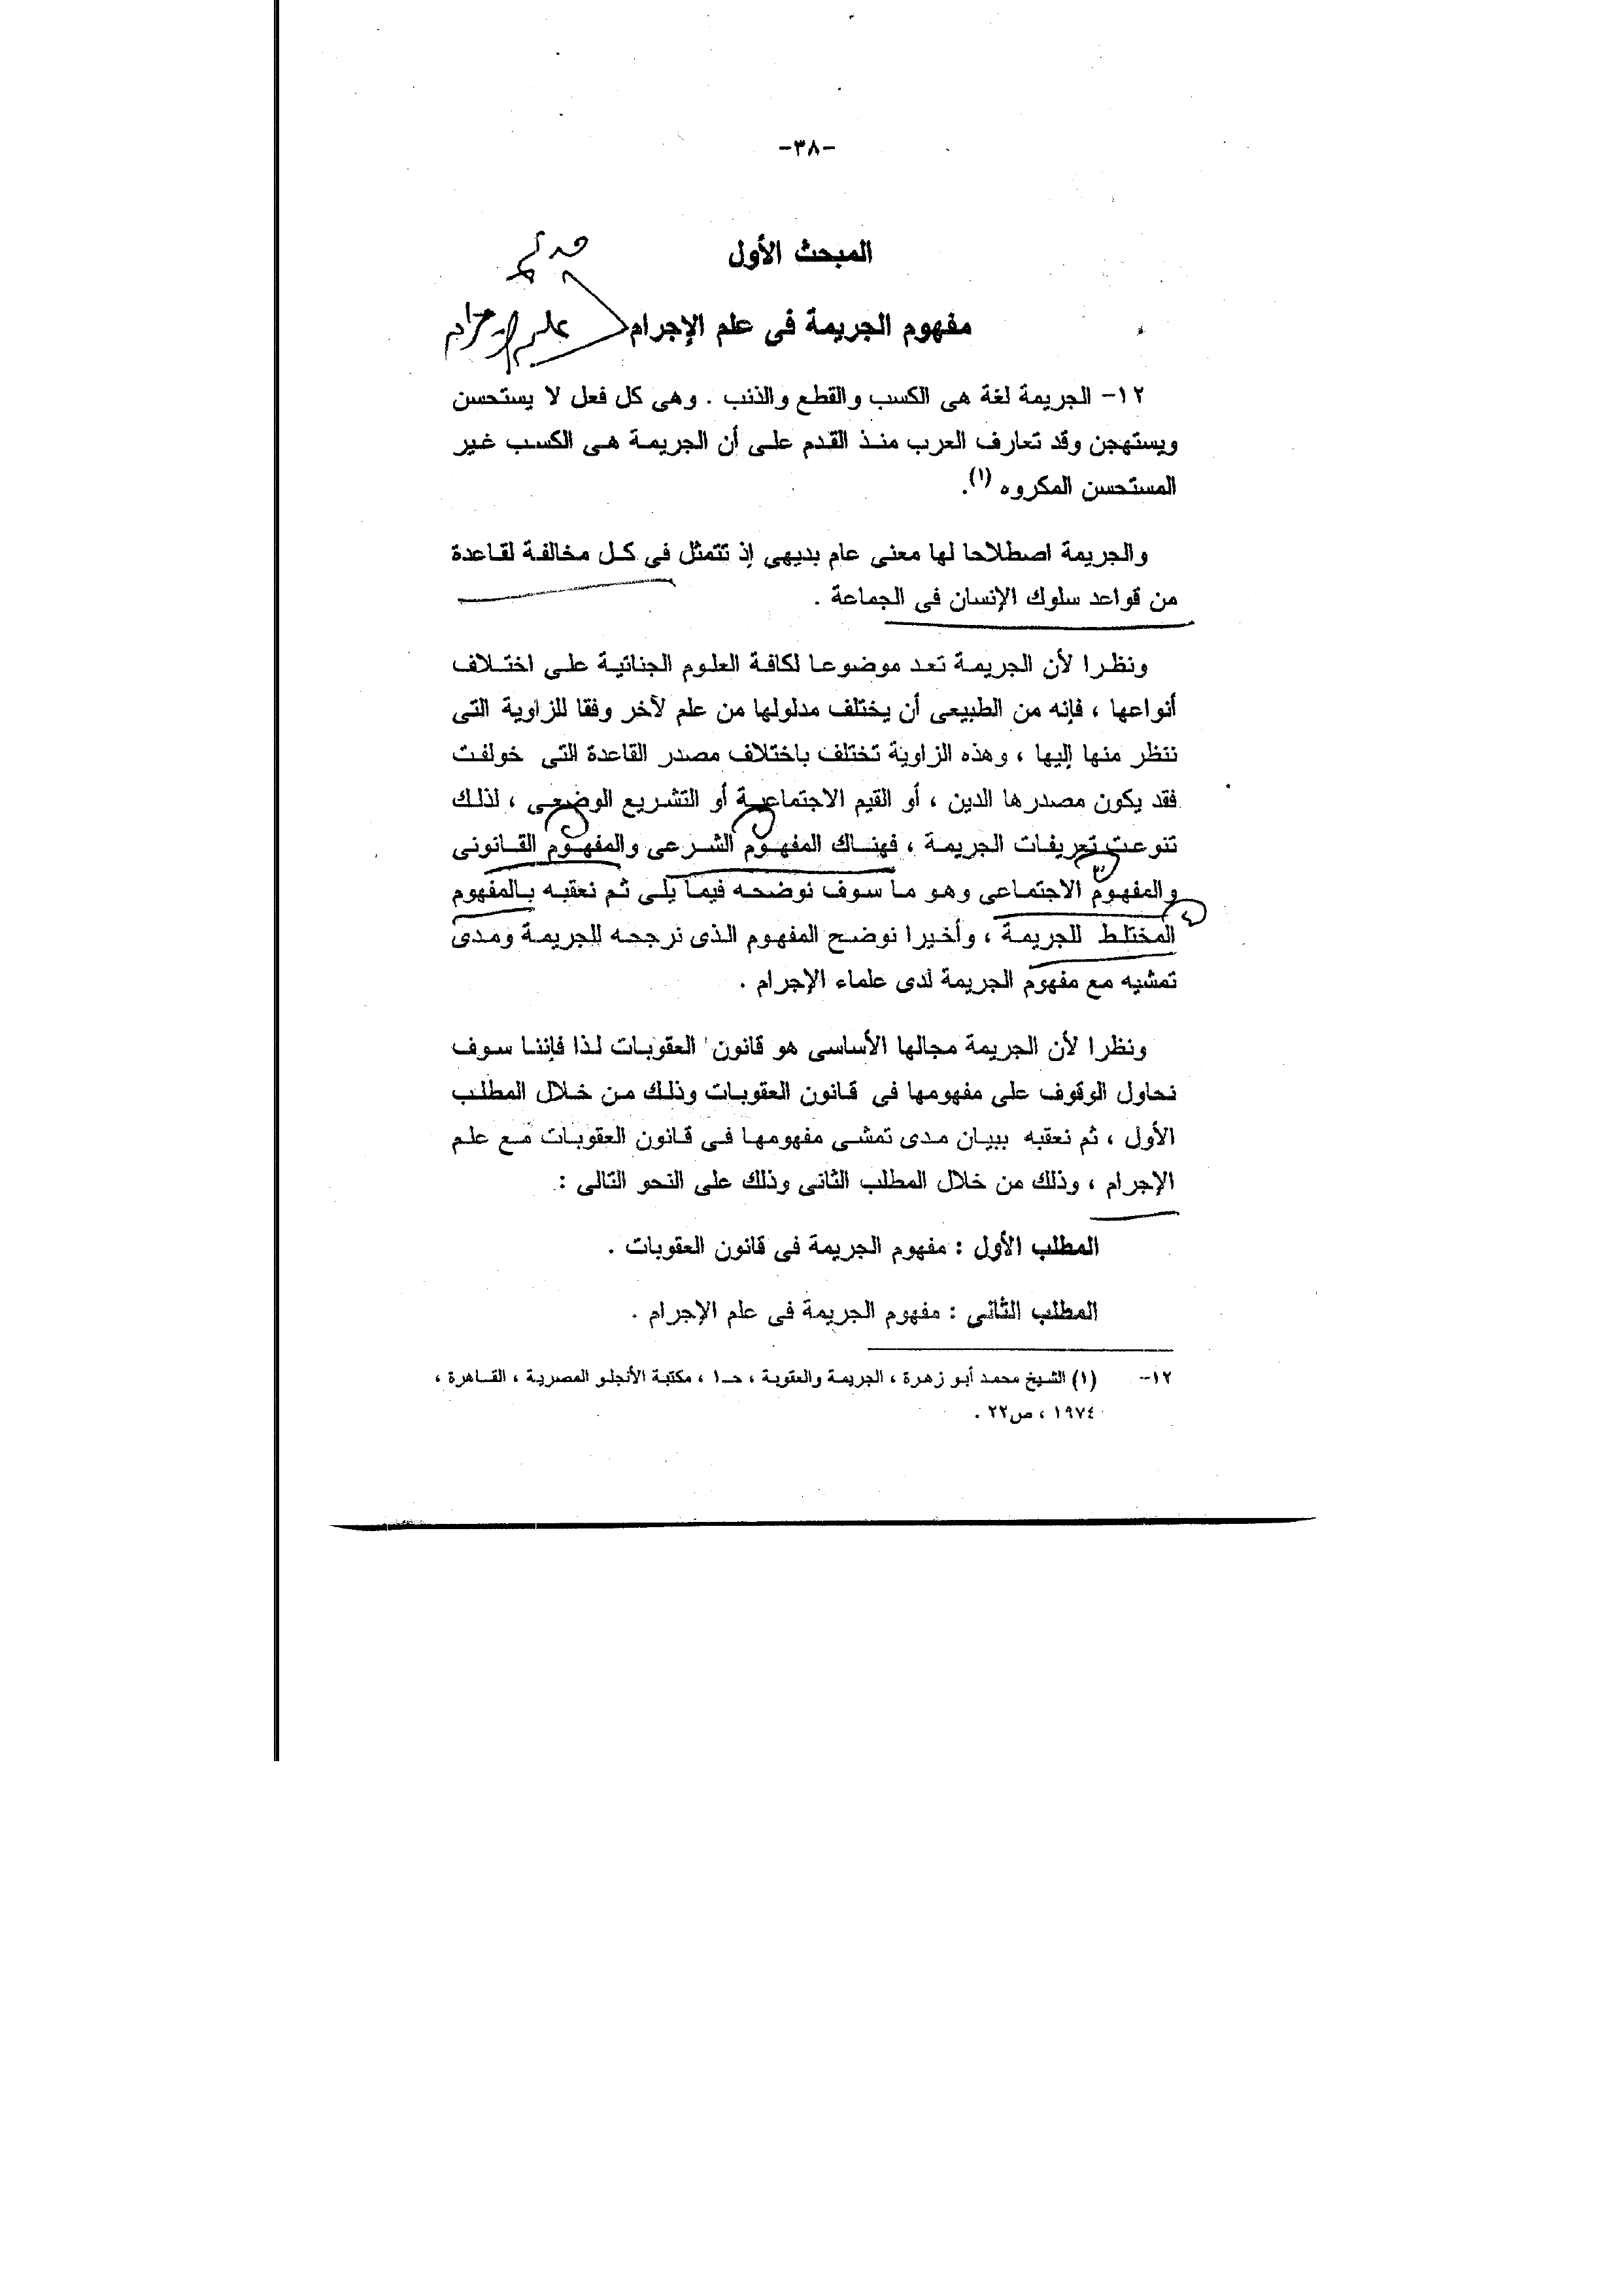 -٣٨-
المبحث الأول
مفهوم الجريمة فى علم الإجرام
علم الإجرام
١٢- الجريمة لغة هى الكسب والقطع والذنب . وهى كل فعل لا يستحسن
ويستهجن وقد تعارف العرب منذ القدم على أن الجريمة هى الكسب غير
المستحسن المكروه (١).
والجريمة اصطلاحا لها معنى عام بديهى إذ تتمثل فى كل مخالفة لقاعدة
من قواعد سلوك الإنسان فى الجماعة .
ونظرا لأن الجريمة تعد موضوعا لكافة العلوم الجنائية على اختلاف
أنواعها ، فإنه من الطبيعى أن يختلف مدلولها من علم لآخر وفقا للزاوية التى
ننظر منها إليها ، وهذه الزاوية تختلف باختلاف مصدر القاعدة التى خولفت
فقد يكون مصدرها الدين ، أو القيم الاجتماعية أو التشريع الوضعى ، لذلك
تنوعت تعريفات الجريمة ، فهناك المفهوم الشرعى والمفهوم القانونى
والمفهوم الاجتماعى وهو ما سوف نوضحه فيما يلى ثم نعقبه بالمفهوم
المختلط للجريمة ، وأخيرا نوضح المفهوم الذى نرجحه للجريمة ومدى
تمشيه مع مفهوم الجريمة لدى علماء الإجرام .
ونظرا لأن الجريمة مجالها الأساسى هو قانون العقوبات لذا فإننا سوف
نحاول الوقوف على مفهومها فى قانون العقوبات وذلك من خلال المطلب
الأول ، ثم نعقبه ببيان مدى تمشى مفهومها فى قانون العقوبات مع علم
الإجرام ، وذلك من خلال المطلب الثانى وذلك على النحو التالى :
المطلب الأول : مفهوم الجريمة فى قانون العقوبات .
المطلب الثانى : مفهوم الجريمة فى علم الإجرام .
١٢- (١) الشيخ محمد أبو زهرة ، الجريمة والعقوبة ، حـ١ ، مكتبة الأنجلو المصرية ، القاهرة ،
١٩٧٤ ، ص٢٢ .